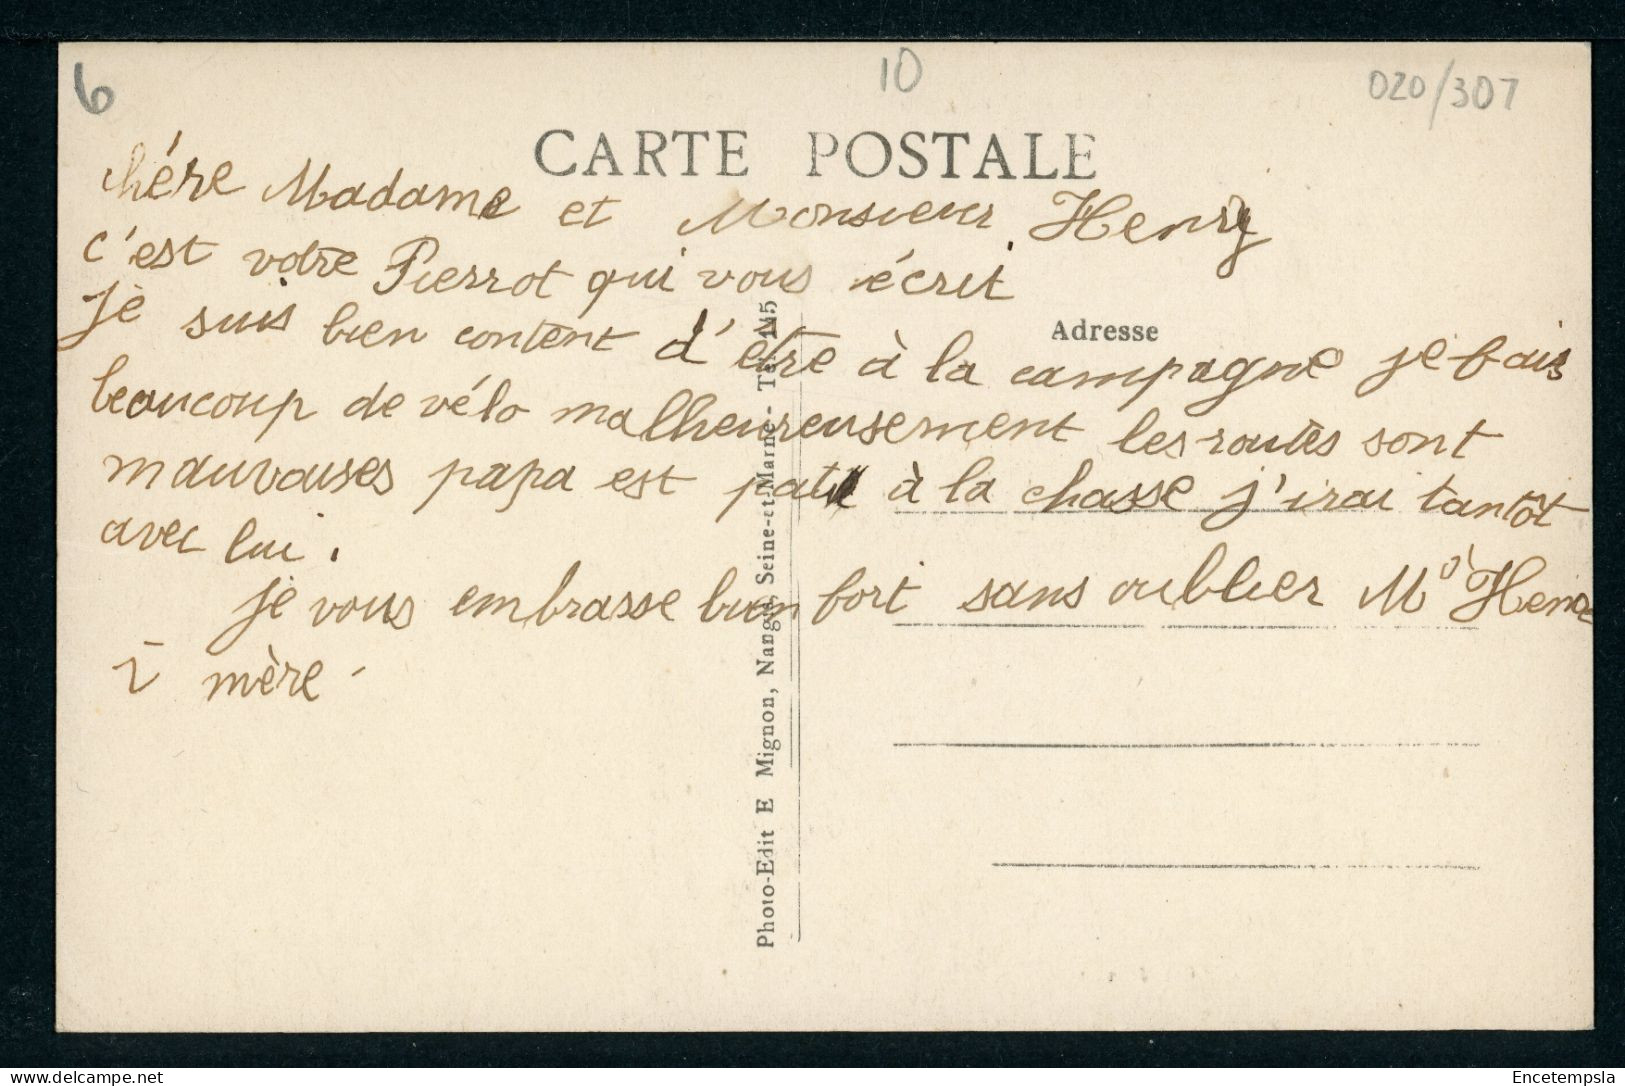 6
10
020/307
CARTE POSTALE
chére Madame et Monsieur Henry
c'est votre Pierrot qui vous écrit
Je suis bien content d'être à la campagne je fais
beaucoup de vélo malheureusement les routes sont
mauvaises papa est à la chasse j'irai tantôt
avec lui.
je vous embrasse bien fort sans oublier
mère.
Adresse
Photo-Edit E Mignon, Nangis, Seine-et-Marne - Tél. 145
delcampe.net
Encetempsla